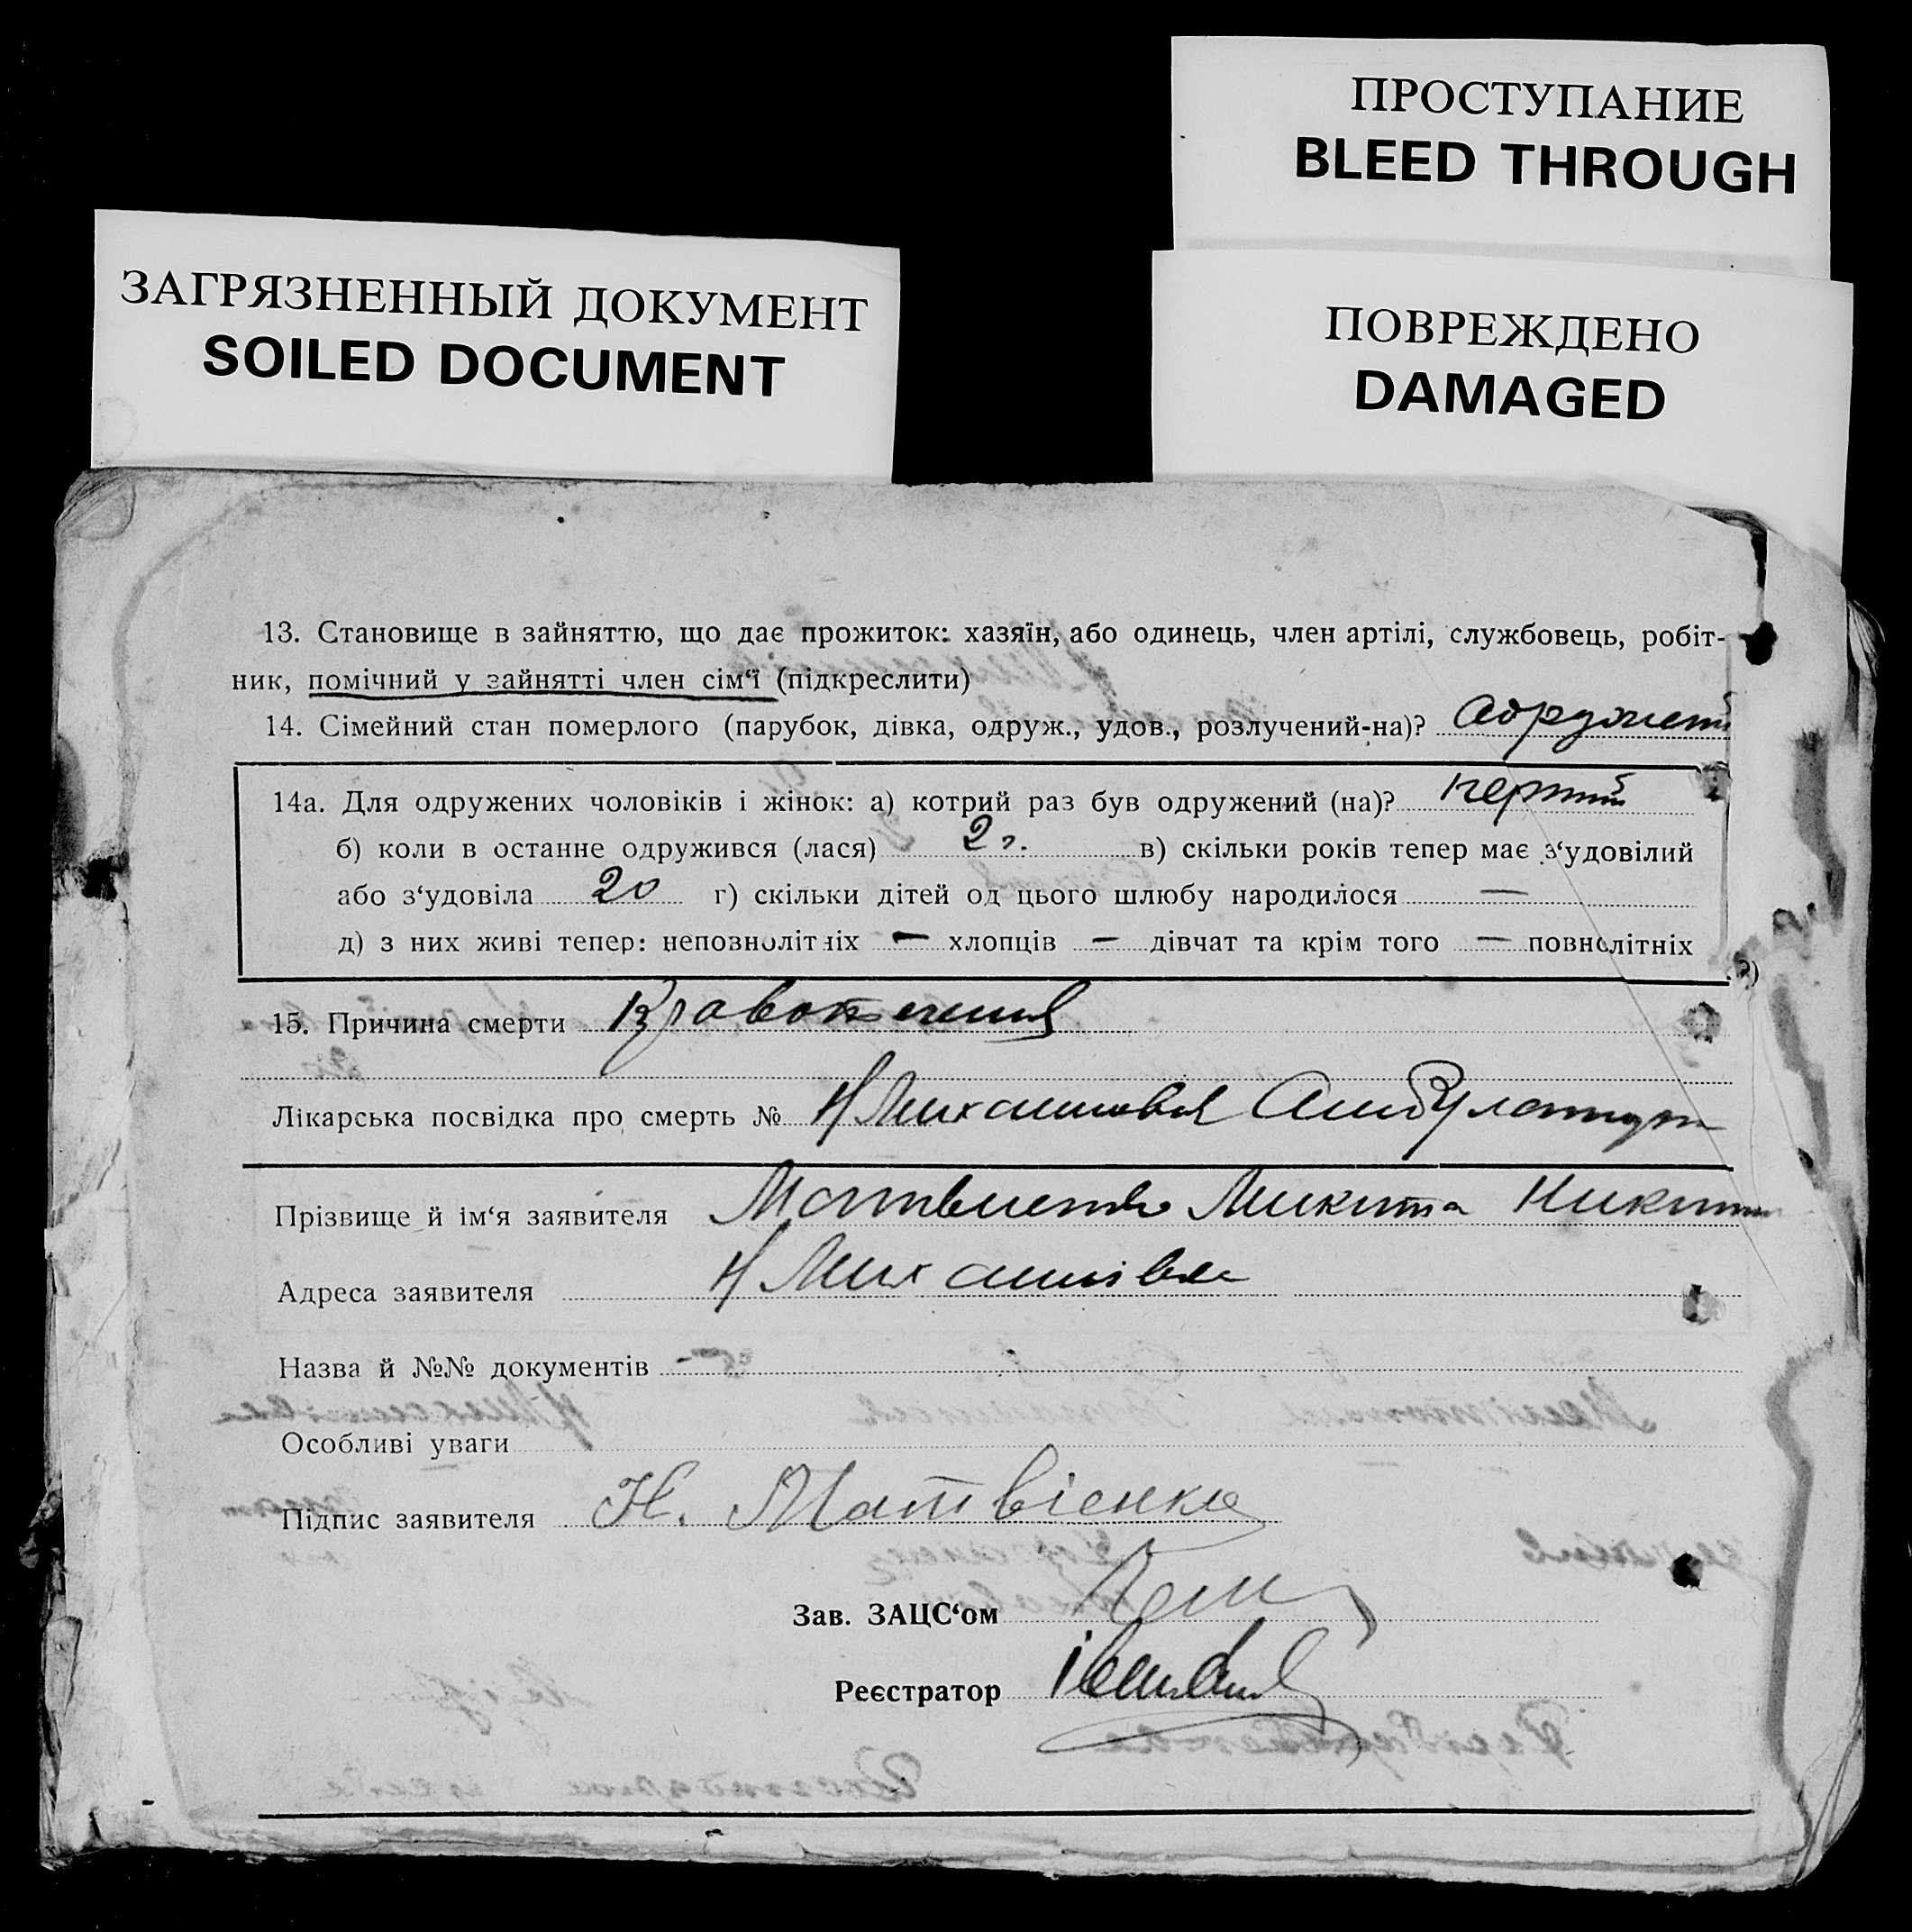 ПРОСТУПАНИЕ
BLEED THROUGH
ЗАГРЯЗНЕННЫЙ ДОКУМЕНТ
SOILED DOCUMENT
ПОВРЕЖДЕНО
DAMAGED
13. Становище в зайняттю, що дає прожиток: хазяїн, або одинець, член артілі, службовець, робіт-
ник, помічний у зайнятті член сім‘ї (підкреслити)
14. Сімейний стан померлого (парубок, дівка, одруж., удов., розлучений-на)?
14а. Для одружених чоловіків і жінок: а) котрий раз був одружений (на)? перший
б) коли в останнє одружився (лася) 2 г. в) скільки років тепер має з‘удовілий
або з‘удовіла 20 г) скільки дітей од цього шлюбу народилося —
д) з них живі тепер: неповнолітніх — хлопців — дівчат та крім того — повнолітніх
15. Причина смерти Кравотечения
Лікарська посвідка про смерть № Н Михайловка
Прізвище й ім‘я заявителя Матвиенко Микита
Адреса заявителя Н Михайлівка
Назва й №№ документів —
Особливі уваги
Підпис заявителя Н. Матвієнко
Зав. ЗАЦС‘ом
Реєстратор